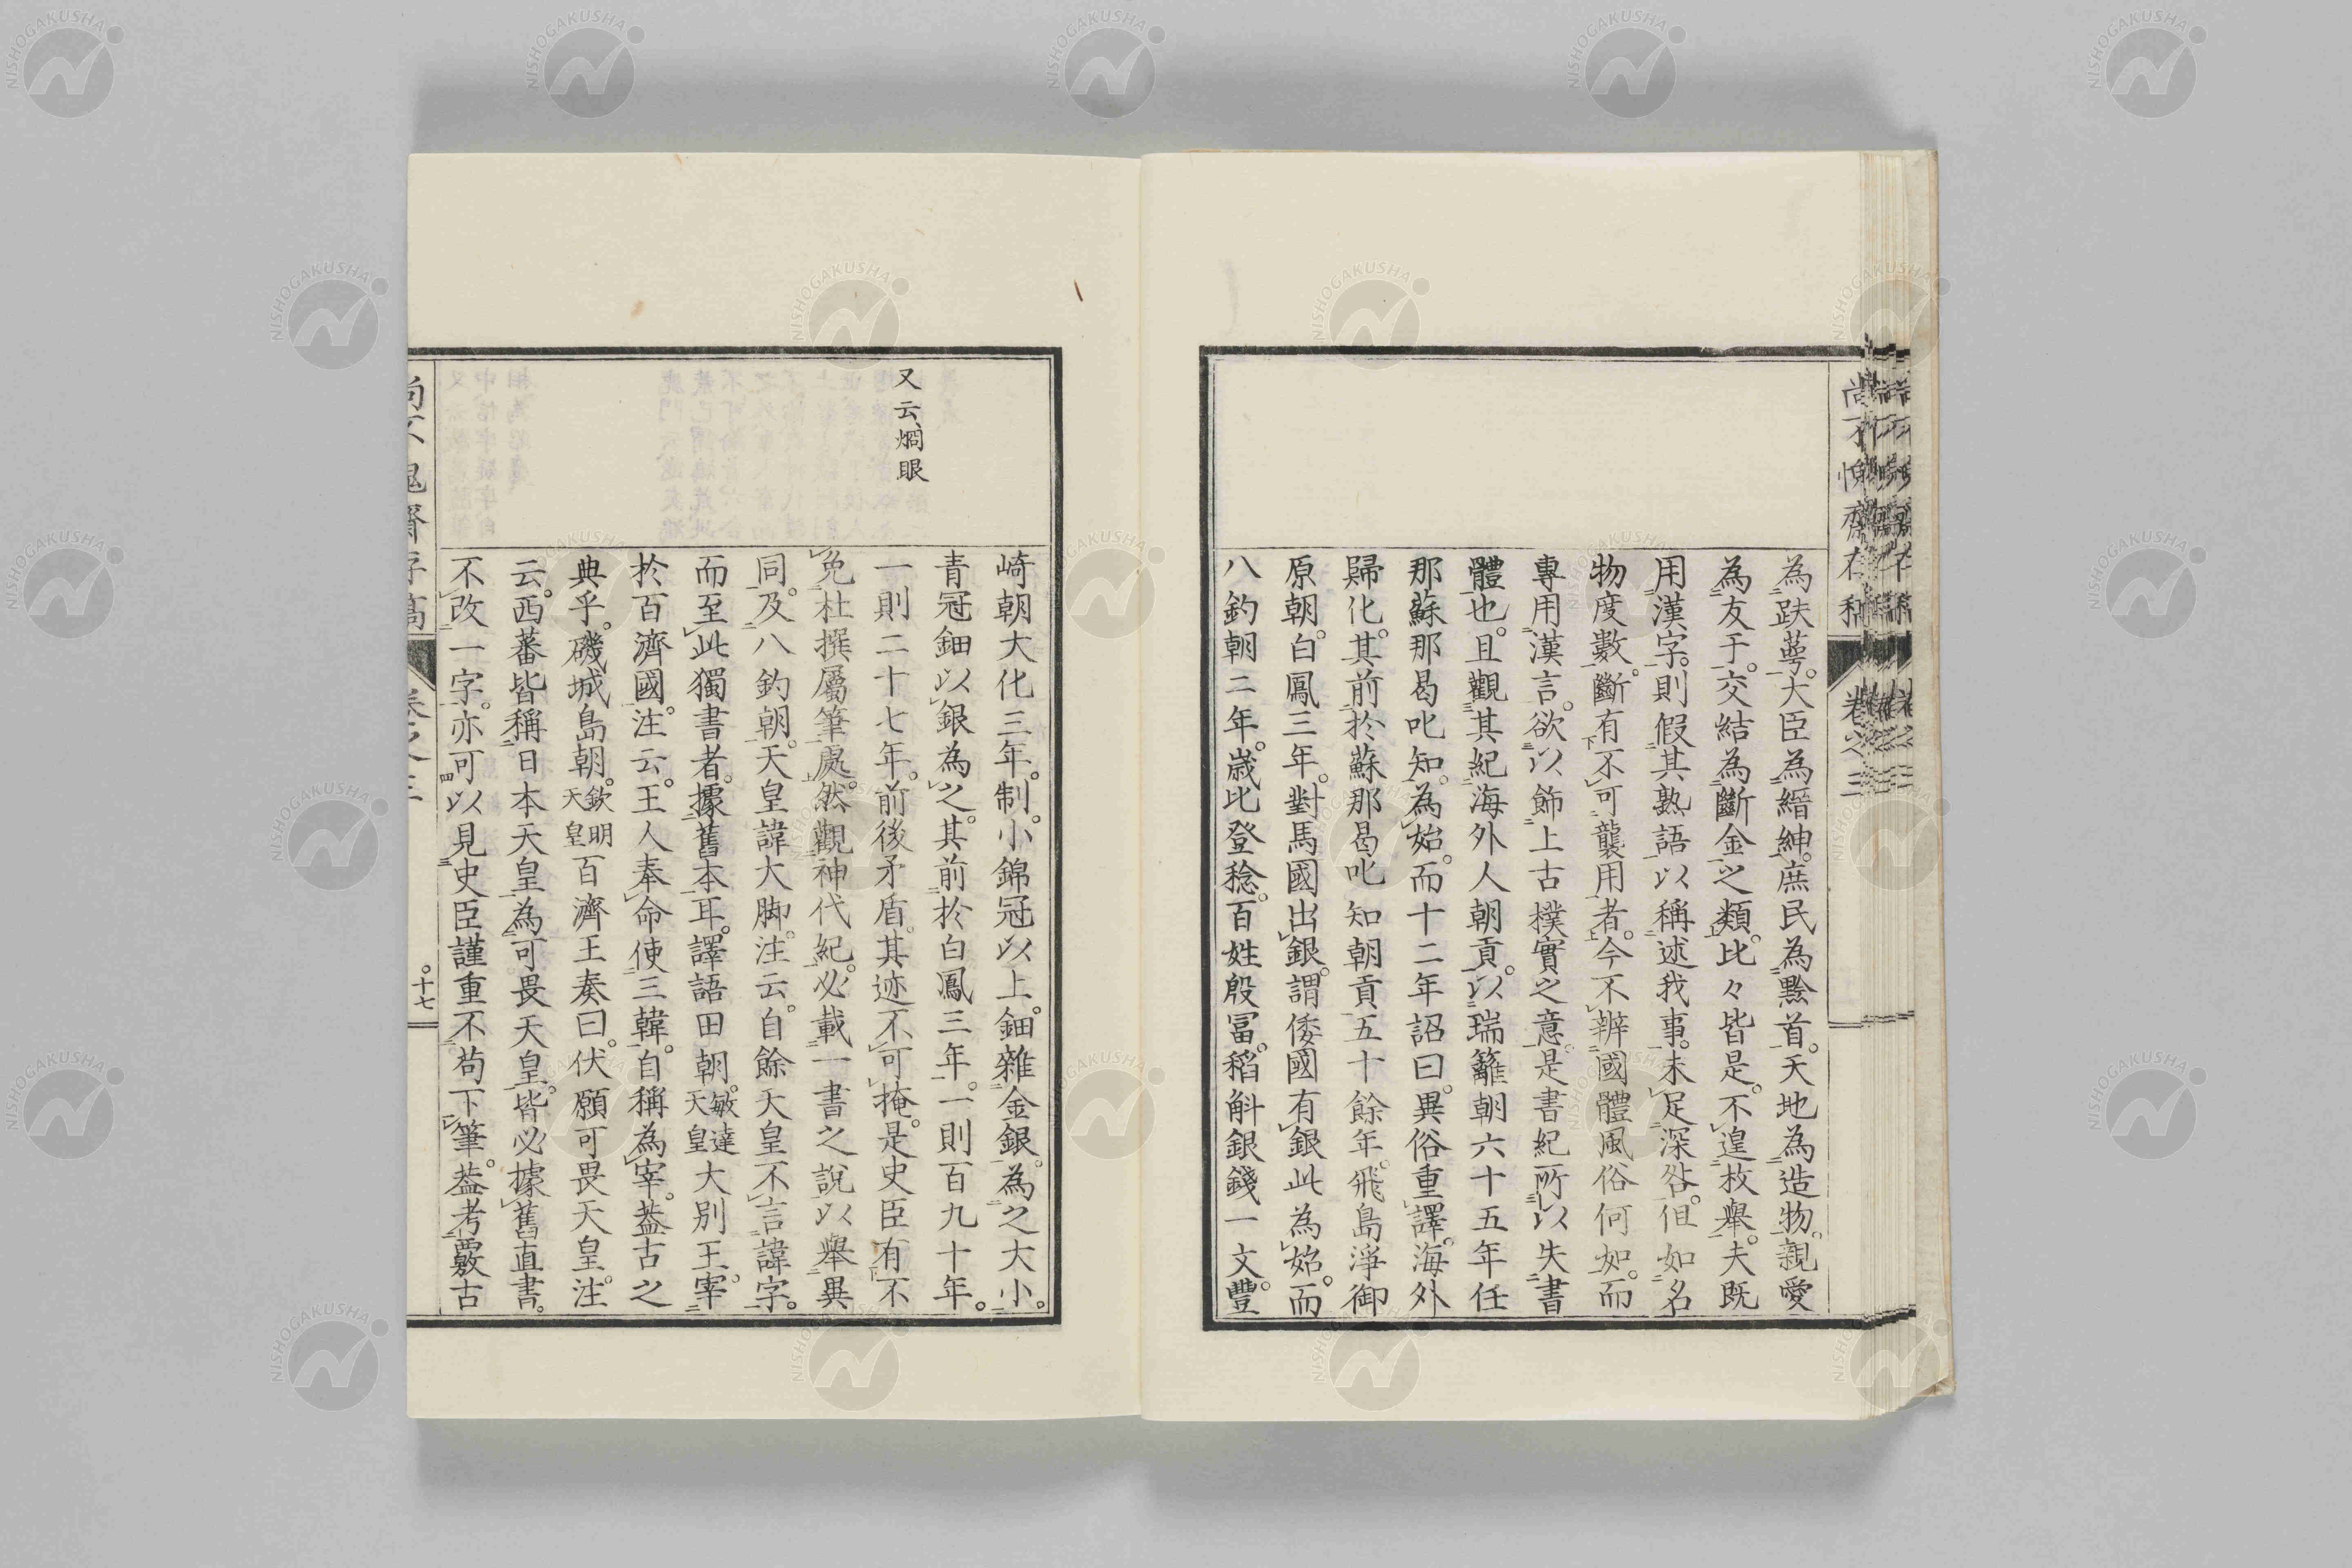 為跌萼。大臣為縉紳。庶民為黔首。天地為造物。親愛
為友于。交結為斷金之類。比々皆是。不遑枚舉。夫既
用漢字。則假其熟語以稱述我事。未足深咎。但如名
物度數。斷有不可襲用者。今不辨國體風俗何如。而
專用漢言。欲以飾上古樸實之意。是書紀所以失書
體也。且觀其紀海外人朝貢。以瑞籬朝六十五年任
那蘇那曷叱知。為始。而十二年詔曰。異俗重譯。海外
歸化。其前於蘇那曷叱知朝貢五十餘年。飛島淨御
原朝。白鳳三年。對馬國出銀。謂倭國有銀此為始。而
八釣朝二年。歲比登稔。百姓殷冨。稻斛銀錢一文。豐
尚不愧齋存稿
卷之三
又云烱眼
崎朝大化三年。制。小錦冠以上。鈿雜金銀。為之大小。
青冠鈿以銀為之。其前於白鳳三年。一則百九十年。
一則二十七年。前後矛盾。其迹不可掩。是史臣有不
免杜撰屬筆處。然觀神代紀。必載一書之說以舉異
同。及八釣朝。天皇諱大脚。注云。自餘天皇不言諱字。
而至此獨書者。據舊本耳。譯語田朝。敏達天皇大別王。宰
於百濟國。注云。王人奉命使三韓。自稱為宰。葢古之
典乎。磯城島朝。欽明天皇百濟王奏曰。伏願可畏天皇。注
云。西蕃皆稱日本天皇為可畏天皇。皆必據舊直書。
不改一字。亦可以見史臣謹重不苟下筆。葢考覈古
尚不愧齋存稿
卷之三
十七
NISHOGAKUSHA